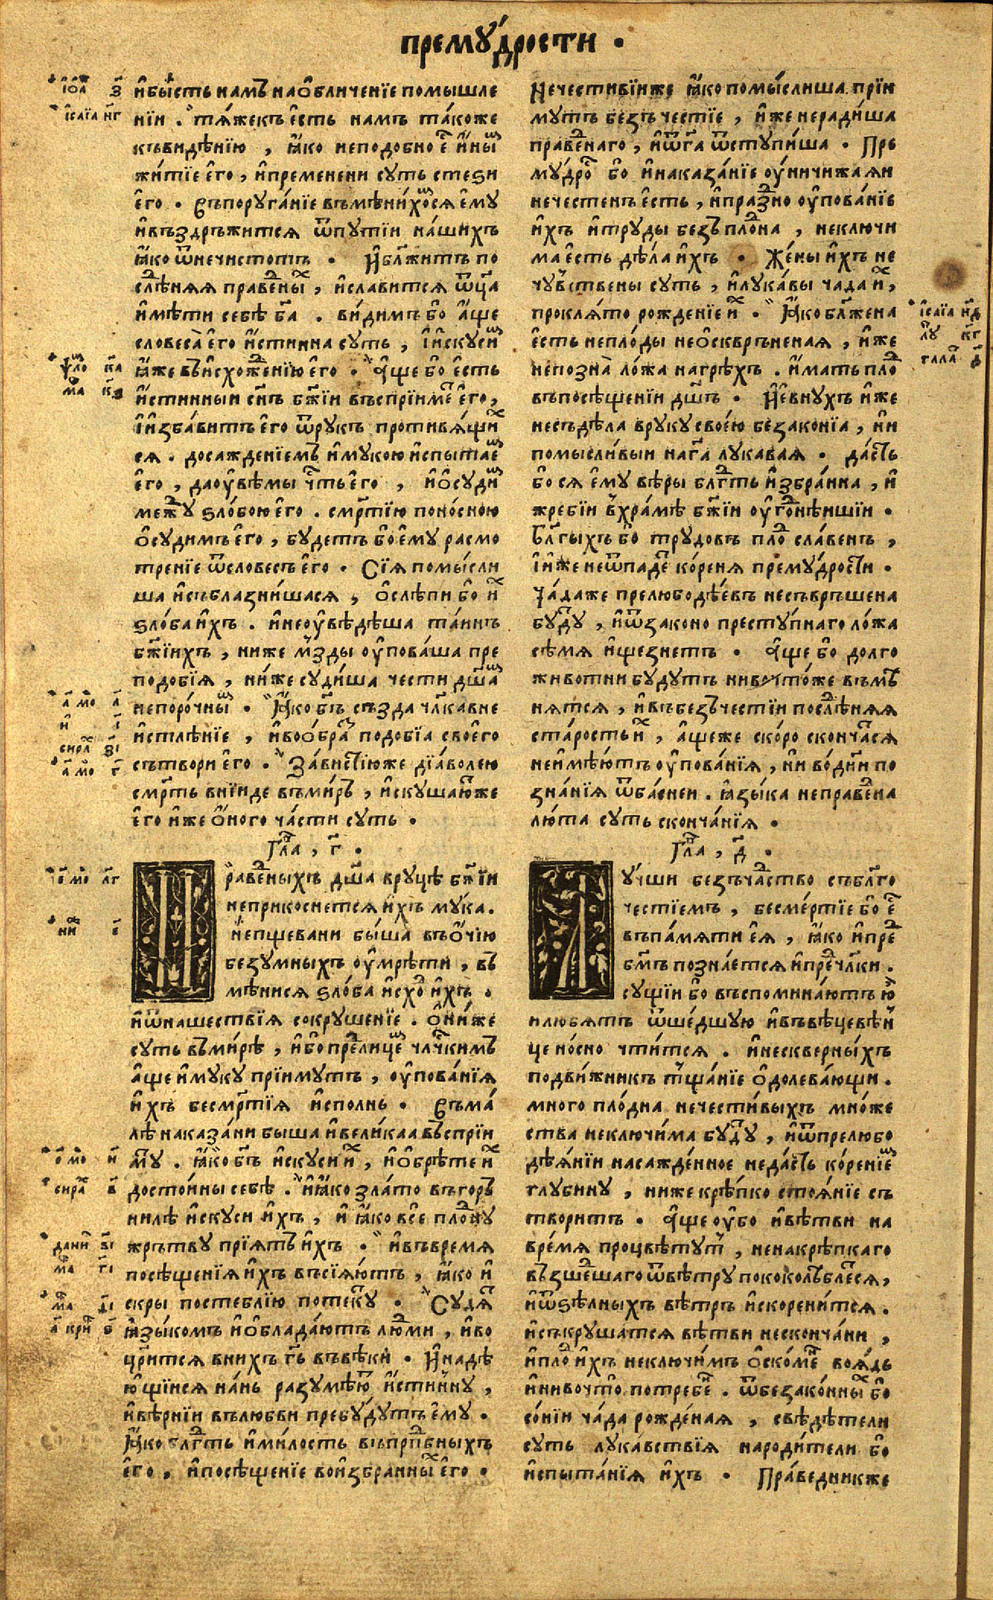 премꙋ́дрости ·
и҆бы́сть намъ наѻ҆бличенїе помышле
нїи . тѧ́жекъ є҆сть намъ та́коже
къвидѣнїю , ꙗ҆́ко неподобно є҆ и҆ны
жи́тїе є҆го̀ , и҆пременени сꙋть стеѕи
є҆го̀ . въпорꙋга́нїе въмѣни́хоⷨсѧ є҆мꙋ
и҆въздръжи́тсѧ ѿпꙋтїи на́шихъ
ꙗ҆́ко ѿнечистотъ . и҆блажи́тъ по
слѣ́днѧѧ првⷣены , и҆слави́тсѧ ѿц҃а
и҆мѣ́ти себѣ̀ бг҃а . ви́димъ бо а҆́ще
словеса̀ є҆го̀ и҆́стинна сꙋть , и҆и҆скꙋсиⷨ
ꙗ҆́же въи҆схоже́нїю є҆го̀ . а҆́ще бо є҆сть
и҆́стинныи сн҃ъ бж҃їи въспрїи́меⷮ є҆го̀ ,
и҆и҆зба́витъ є҆го̀ ѿрꙋкъ проти́вѧщи
сѧ . досажде́нїемъ и҆мꙋкою и҆спыта́еⷨ
є҆го̀ , даꙋ҆вѣ́мы чⷭ҇ть є҆го̀ , и҆ѻ҆сꙋдиⷨ
межⷣꙋ ѕло́бою є҆го̀ . смр҃тїю поно́сною
ѻ҆сꙋди́мъ є҆го̀ , бꙋ́детъ бо є҆мꙋ расмо
тре́нїе ѿсловесъ є҆го̀ . Сїѧ̀ помы́сли
ша и҆съблазни́шасѧ , ѻ҆слѣпѝ бо и҆ⷯ
ѕло́ба и҆́хъ . и҆неꙋ҆вѣ́дѣша та́инъ
бж҃їихъ , ниже мзды ꙋ҆пова́ша пре
подо́бїѧ , ни́же сꙋди́ша че́сти дш҃аⷨ
непоро́чныⷨ . Ꙗ҆́ко бг҃ъ създа̀ члк҃а вне
и҆стлѣ́нїе , и҆воѻ҆браз подо́бїа своего̀
сътворѝ є҆го̀ . За́вистїюже дїа́волею
смр҃ть вни́иде въми́ръ , и҆скꙋша́юⷮже
є҆го̀ и҆́же ѻ҆́ного ча́сти сꙋть .
Гл҃а , г҃ .
Праве́дныхъ дш҃а врꙋцѣ̀ бж҃їи
неприкоснетсѧ и҆́хъ мꙋ́ка .
и҆непщевани бы́ша въѻ҆́чїю
безꙋ́мныхъ ꙋ҆мрѣ́ти , въ
мѣни́сѧ ѕло́ба и҆схоⷣ и҆́хъ .
и҆ѿнаше́ствїѧ сокрꙋше́нїе . ѻ҆ни́же
сꙋть въми́рѣ , и҆бо прⷣелице́мъ члч҃кимъ
а҆́ще и҆мꙋ́кꙋ прїи́мꙋтъ , ꙋ҆пова́нїѧ
и҆́хъ бесмр҃тїѧ и҆спо́лнь . Въма́
лѣ наказа́ни бы́ша и҆вели́каа въсприи
мꙋⷮ . ꙗ҆ко бг҃ъ и҆скꙋси и҆ⷯ , и҆ѻ҆брѣ́те и҆ⷯ
досто́ины себѣ̀ . и҆ꙗ҆́ко зла́то въгоръ
нилѣ и҆скꙋсѝ и҆́хъ , и҆ ꙗ҆́ко все плоⷣнꙋ
жрътвꙋ прїѧ́тъ и҆́хъ . и҆въвре́мѧ
посѣще́нїѧ и҆́хъ въсїѧ́ютъ , ꙗ҆́ко и҆́
скры посте́блїю потекꙋⷮ . Сꙋ́дѧⷮ
ꙗ҆зы́комъ и҆ѻ҆блада́ютъ людⷨи , и҆во
цр҃итсѧ вни́хъ гд҃ь въвѣ́ки . и҆надѣ́
ю҆щїисѧ на́нь разꙋмѣ́юⷮ и҆́стиннꙋ ,
и҆вѣ́рнїи влю́бви пребꙋ́дꙋтъ є҆мꙋ .
ꙗ҆́ко блⷢ҇ть и҆ми́лость въпрпⷣбныхъ
є҆го̀ , и҆посѣще́нїе вои҆збра́нныⷯ є҆го̀ .
Нечести́вїиже ꙗ҆́ко помы́слиша прїи
мꙋтъ безъче́стїе , и҆́же неради́ша
праве́днаго , и҆ѿбг҃а ѿстꙋпи́ша . Пре
мꙋ́дроⷭ бо и҆наказа́нїе ꙋ҆ничижа́ѧи
нечестенъ є҆сть , и҆пра́зⷣно ꙋ҆пова́нїе
и҆́хъ и҆трꙋды̀ безъ плоⷣна , неключи́
ма є҆сть дѣ́ла и҆́хъ . Же́ны и҆́хъ не
чю́вьствены сꙋть , и҆лꙋка́вы чада иⷯ ,
проклѧ́то рожде́нїе иⷯ . Ꙗ҆́ко блаже́на
є҆сть непло́ды неѻ҆сквръне́наѧ , и҆́же
непозна̀ ло́жа нагрѣ́хъ . и҆́мать плоⷣ
въпосѣще́нїи дш҃ъ . и҆є҆внꙋ́хъ и҆́же
несъдѣ́ла врꙋкꙋ свое́ю беззако́нїа , ни
помысли́выи на́ гд҃а лꙋка́ваѧ . да́сть
бо сѧ є҆мꙋ вѣ́ры блгⷣть и҆збра́нна , и҆
жре́бїи в хра́мѣ бж҃їи ꙋ҆го́днѣишїи .
Бл҃гихъ бо трꙋдовъ плоⷣ сла́венъ ,
и҆и҆же неѿпаде́ ко́ренѧ премꙋ́дрости .
Ча́даже прелюбодѣ́евъ несъвръше́на
бꙋ́дꙋⷮ , и҆ѿзаконо престꙋпнаго ло́жа
сѣ́мѧ и҆ще́знетъ . а҆́ще бо до́лго
живо́тни бꙋ́дꙋтъ ниво чтоже въмѣ
нѧ́тсѧ , и҆въбезъче́стїи послѣ́днѧѧ
ста́рость иⷯ , а҆́щеже ско́ро сконча́ютсѧ
неи҆мѣ́ютъ ꙋ҆пова́нїѧ , ни во́ дн҃и по
зна́нїѧ ѿба́сней . ꙗ҆зы́ка непра́ведна
лю́та сꙋть сконча́нїѧ .
Гл҃а , д҃ .
Лꙋ́чши безъча́дство събл҃го
че́стїемъ , бесме́ртїе бо є҆ⷭ
въпа́мѧти є҆ѧ̀ , ꙗ҆́ко и҆преⷣ
бг҃мъ позна́етсѧ и҆преⷣчл҃ки .
сꙋ́щїи бо въспомина́ютъ ю҆
и҆лю́бѧтъ ѿше́дшꙋю и҆въвѣ́цевѣ́н
це но́сно чти́тсѧ . и҆нескве́рныхъ
подви́жникъ тща́нїе ѻ҆долева́ющи .
мно́го пло́дна нечести́выхъ мно́же
ства неключи́ма бꙋдꙋⷮ , и҆ѿпрелюбо
дѣѧ́нїи насажде́нное неда́стъ коре́нїеⷨ
глꙋбинꙋ , ниже крѣ́пко стоѧ́нїе съ
твори́тъ . а҆́ще ꙋ҆бо и҆вѣтви на
вре́мѧ процвѣ́тꙋтъ , ненакрѣ́пкаго
въ́зше́дшаго ѿвѣ́трꙋ пок околѣблетсѧ ,
и҆ѿѕѣ́лныхъ вѣ́тръ и҆скорени́тсѧ .
и҆съкрꙋша́тсѧ вѣ́тви нескончани ,
и҆плоⷣ и҆́хъ неключи́мъ ѻ҆ско́меⷩ воꙗ́дь
и҆нивочто́ потребеⷩ . ѿбезако́нныⷯ бо
со́нїи ча́да рожде́наѧ , свѣдѣ́тели
сꙋть лꙋка́вствїѧ народи́тели бо
и҆спыта́нїѧ и҆́хъ . Пра́ведникже